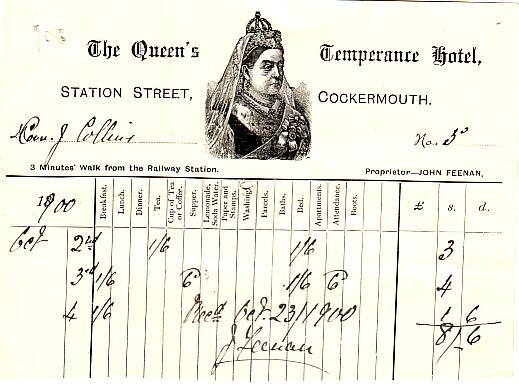 The Queen's Temperance Hotel,
STATION STREET, COCKERMOUTH.
J Collins No. 3
3 Minutes' Walk from the Railway Station. Proprietor—JOHN FEENAN,
1900 Breakfast. Lunch. Dinner. Tea. Cup of Tea or Coffee. Supper. Lemonade, Soda Water. Paper and Stamps. Washing. Parcels. Baths. Bed. Apartments. Attendance. Boots. £ s. d.
Oct 2nd 1/6 1/6 3
3rd 1/6 6 1/6 6 4
4 1/6 Recd Oct. 23/1900 1 6
8/-6
J Feenan